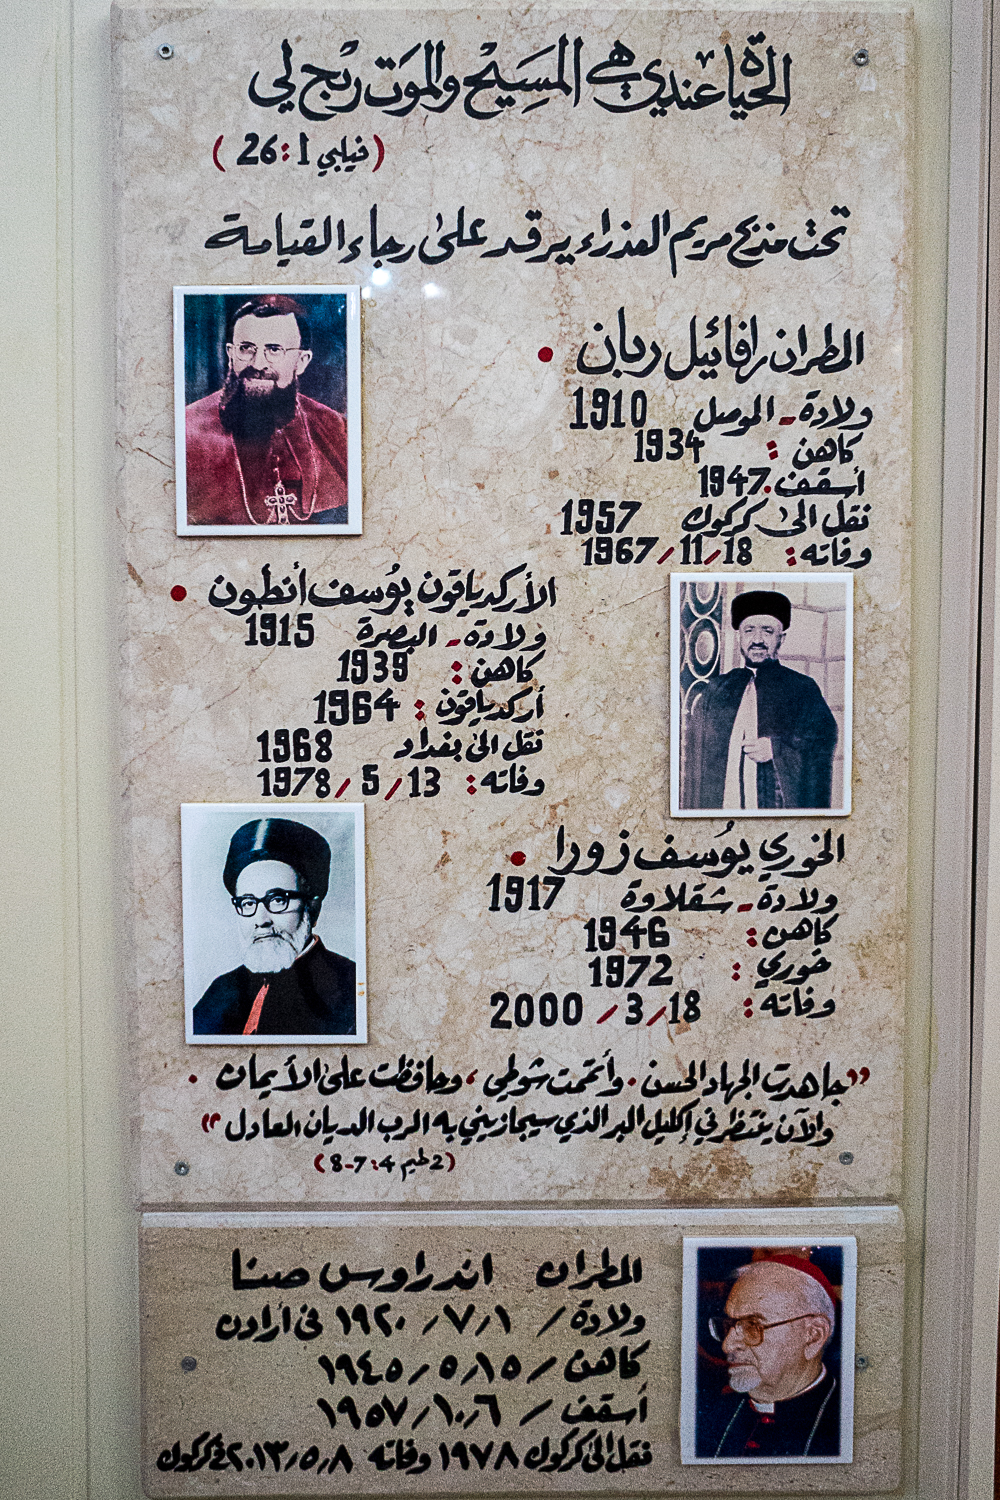 الحياة عندي هي المَسِيْح والمَوَت رِبْح لي
(فيلبي 1:26)
تحت مذبح مريم العذراء يرقد على رجاء القيامة
المطران رافائيل ربان •
ولادة - الموصل 1910
كاهن : 1934
أسقف . 1947
نقل الى كركوك 1957
وفاته : 18/11/1967
الأركدياقون يوُسف أنطون •
ولادة - البصرة 1915
كاهن : 1939
أركدياقون : 1964
نقل الى بغداد 1968
وفاته : 13/5/1978
الخوري يوُسف زورا •
ولادة - شقلاوة 1917
كاهن : 1946
خوري : 1972
وفاته : 18/3/2000
"جاهدت الجهاد الحسن . وأتممت شوطي ، وحافظت على الأيمان .
والآن ينتظرني إكليل البر الذي سيجازيني به الرب الديان العادل"
(2 طيم 4:7-8)
المطران اندراوس صنا
ولادة / ١/٧/١٩٢٠ في أرادن
كاهن / ١٥/٥/١٩٤٥
أسقف / ٦/١٠/١٩٥٧
نقل الى كركوك ١٩٧٨ وفاته ٨/٥/٢٠١٣ في كركوك